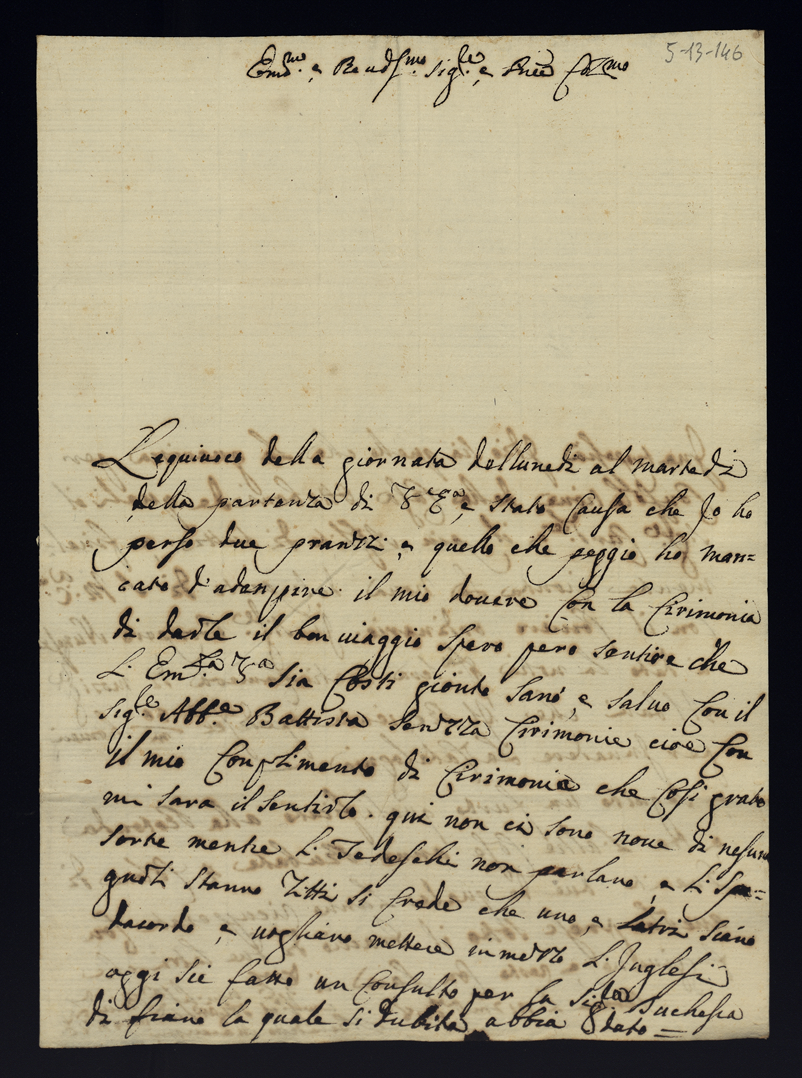 5-13-146
Em.mo e Rendss.mo Sig.re e Pne Col.mo
L'equiuoco della giornata dellunedi al martedi
della partenza di V E.a e stato Causa che Jo ho
perso due pranzzi, e quello che peggio ho man=
cato d'adenpire il mio douere Con la Cirimonia
di darle il bon uiaggio spero pero sentire che
L. Em.za V.a sia Costi gionto sano, e saluo Con il
sig.re Abb.e Battista senzza Cirimonie cioe Con
il mio Conplimento di Cirimonie che Cosi grato
mi sara il sentirlo. qui non ci sono noue di nesuna
sorte mentre Li Tedeschi non parlano, e Li Spa=
guoli stanno zitti si Crede che uno, e laltri siano
dacordo, e uogliano mettere in mezzo L'Inglesi
oggi sie fatto un Consulto per la Sig.ra Duchessa
di fiano la quale si dubita abbia